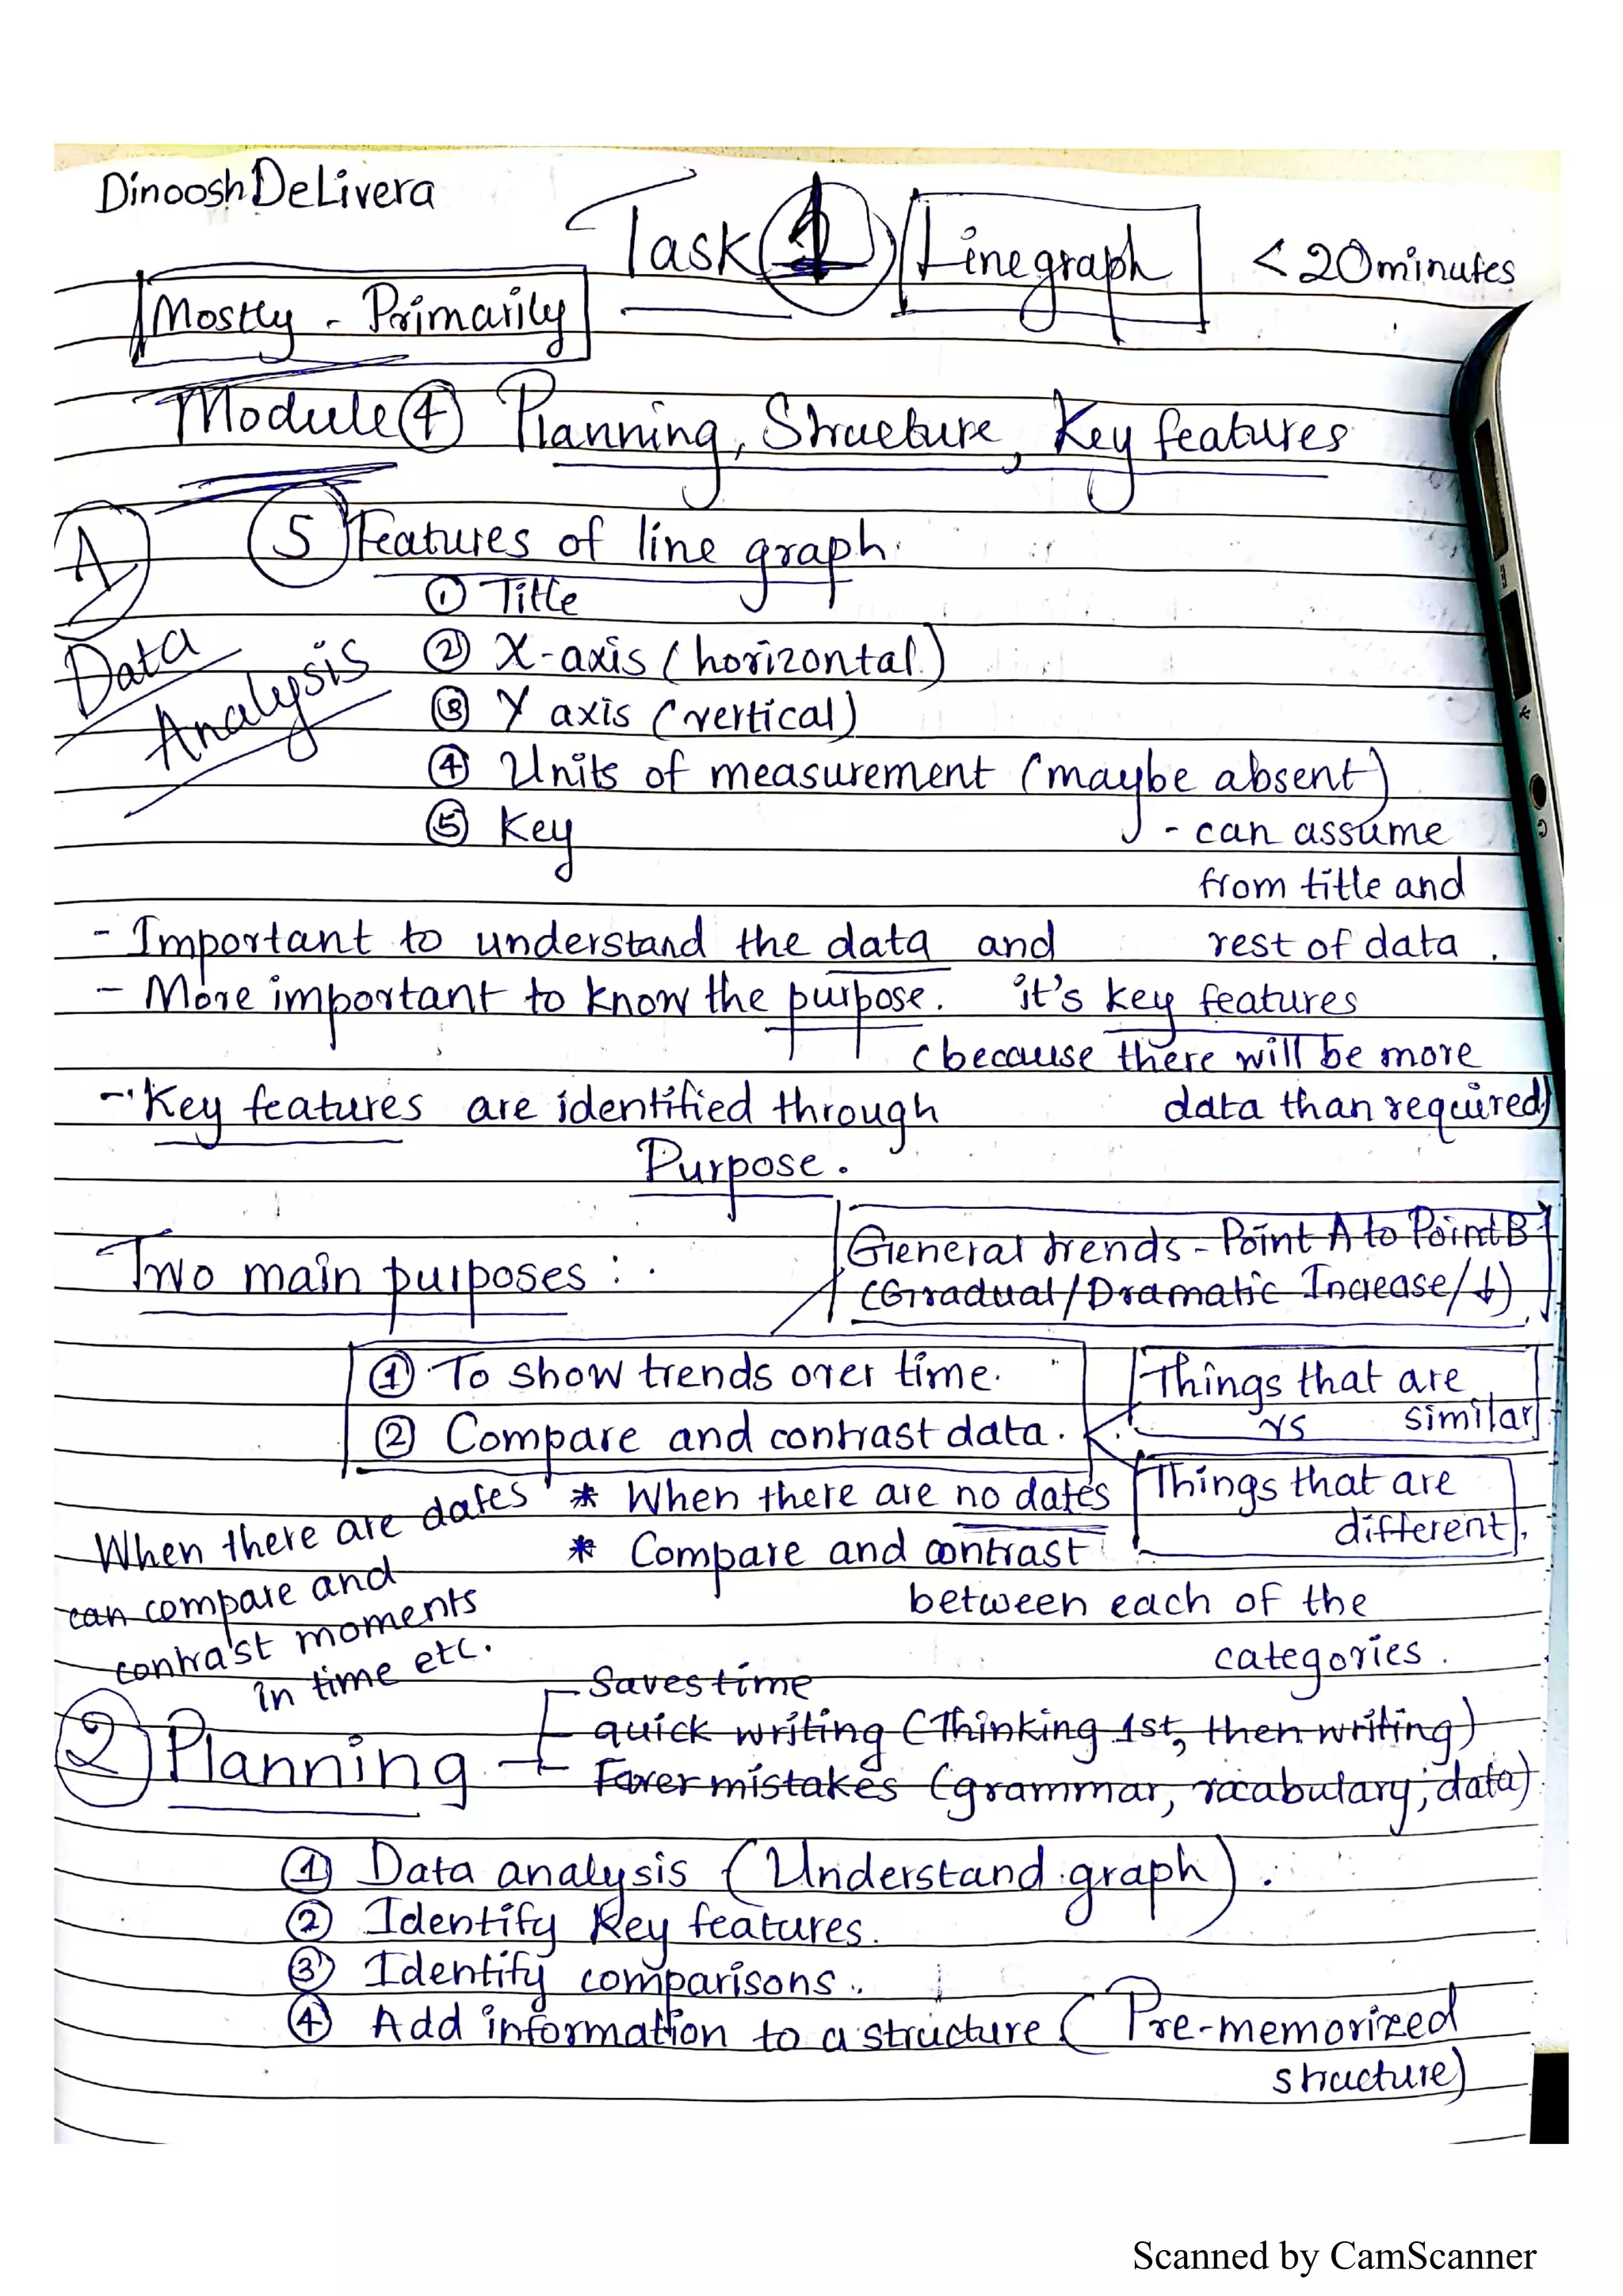 Dinoosh DeLivera
Task 1 Line graph < 20 minutes
Mostly - Primarily
Module 4 Planning, Structure, Key features
A 5 Features of line graph.
Data Analysis
① Title
② X-axis (horizontal)
③ Y axis (vertical)
④ Units of measurement (maybe absent)
⑤ Key
- can assume
from title and
rest of data.
- Important to understand the data and
it's key features
(because there will be more
data than required)
- More important to know the purpose.
- Key features are identified through
Purpose.
General trends - Point A to Point B
(Gradual/Dramatic Increase/↓)
Two main purposes:
① To show trends over time.
② Compare and contrast data.
Things that are
similar
vs
Things that are
different.
When there are dates
can compare and
contrast moments
in time etc.
* When there are no dates
* Compare and contrast
between each of the
categories.
② Planning
Saves time
quick writing (Thinking 1st, then writing)
Fewer mistakes (grammar, vocabulary, data)
① Data analysis (Understand graph).
② Identify Key features.
③ Identify comparisons.
④ Add information to a structure (Pre-memorized
structure)
Scanned by CamScanner